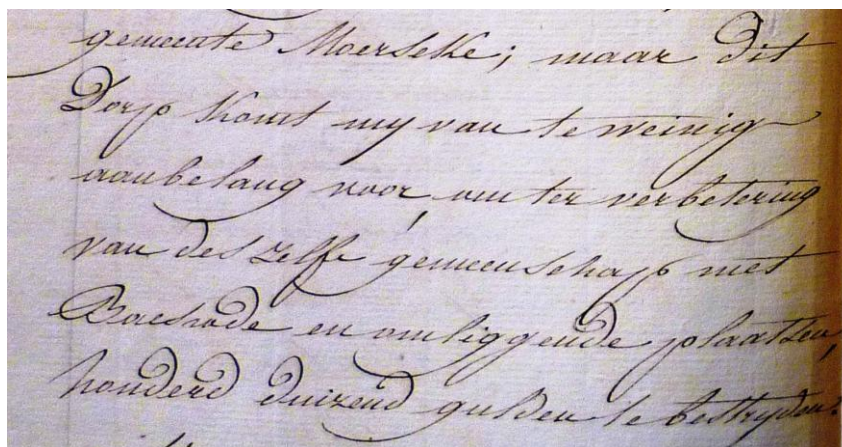 gemeente Moerseke; maar dit
Dorp komt my van te weinig
aanbelang voor, om ter verbetering
van des zelfs gemeenschap met
Baesrode en omliggende plaatsen,
honderd duizend gulden te bestryden.